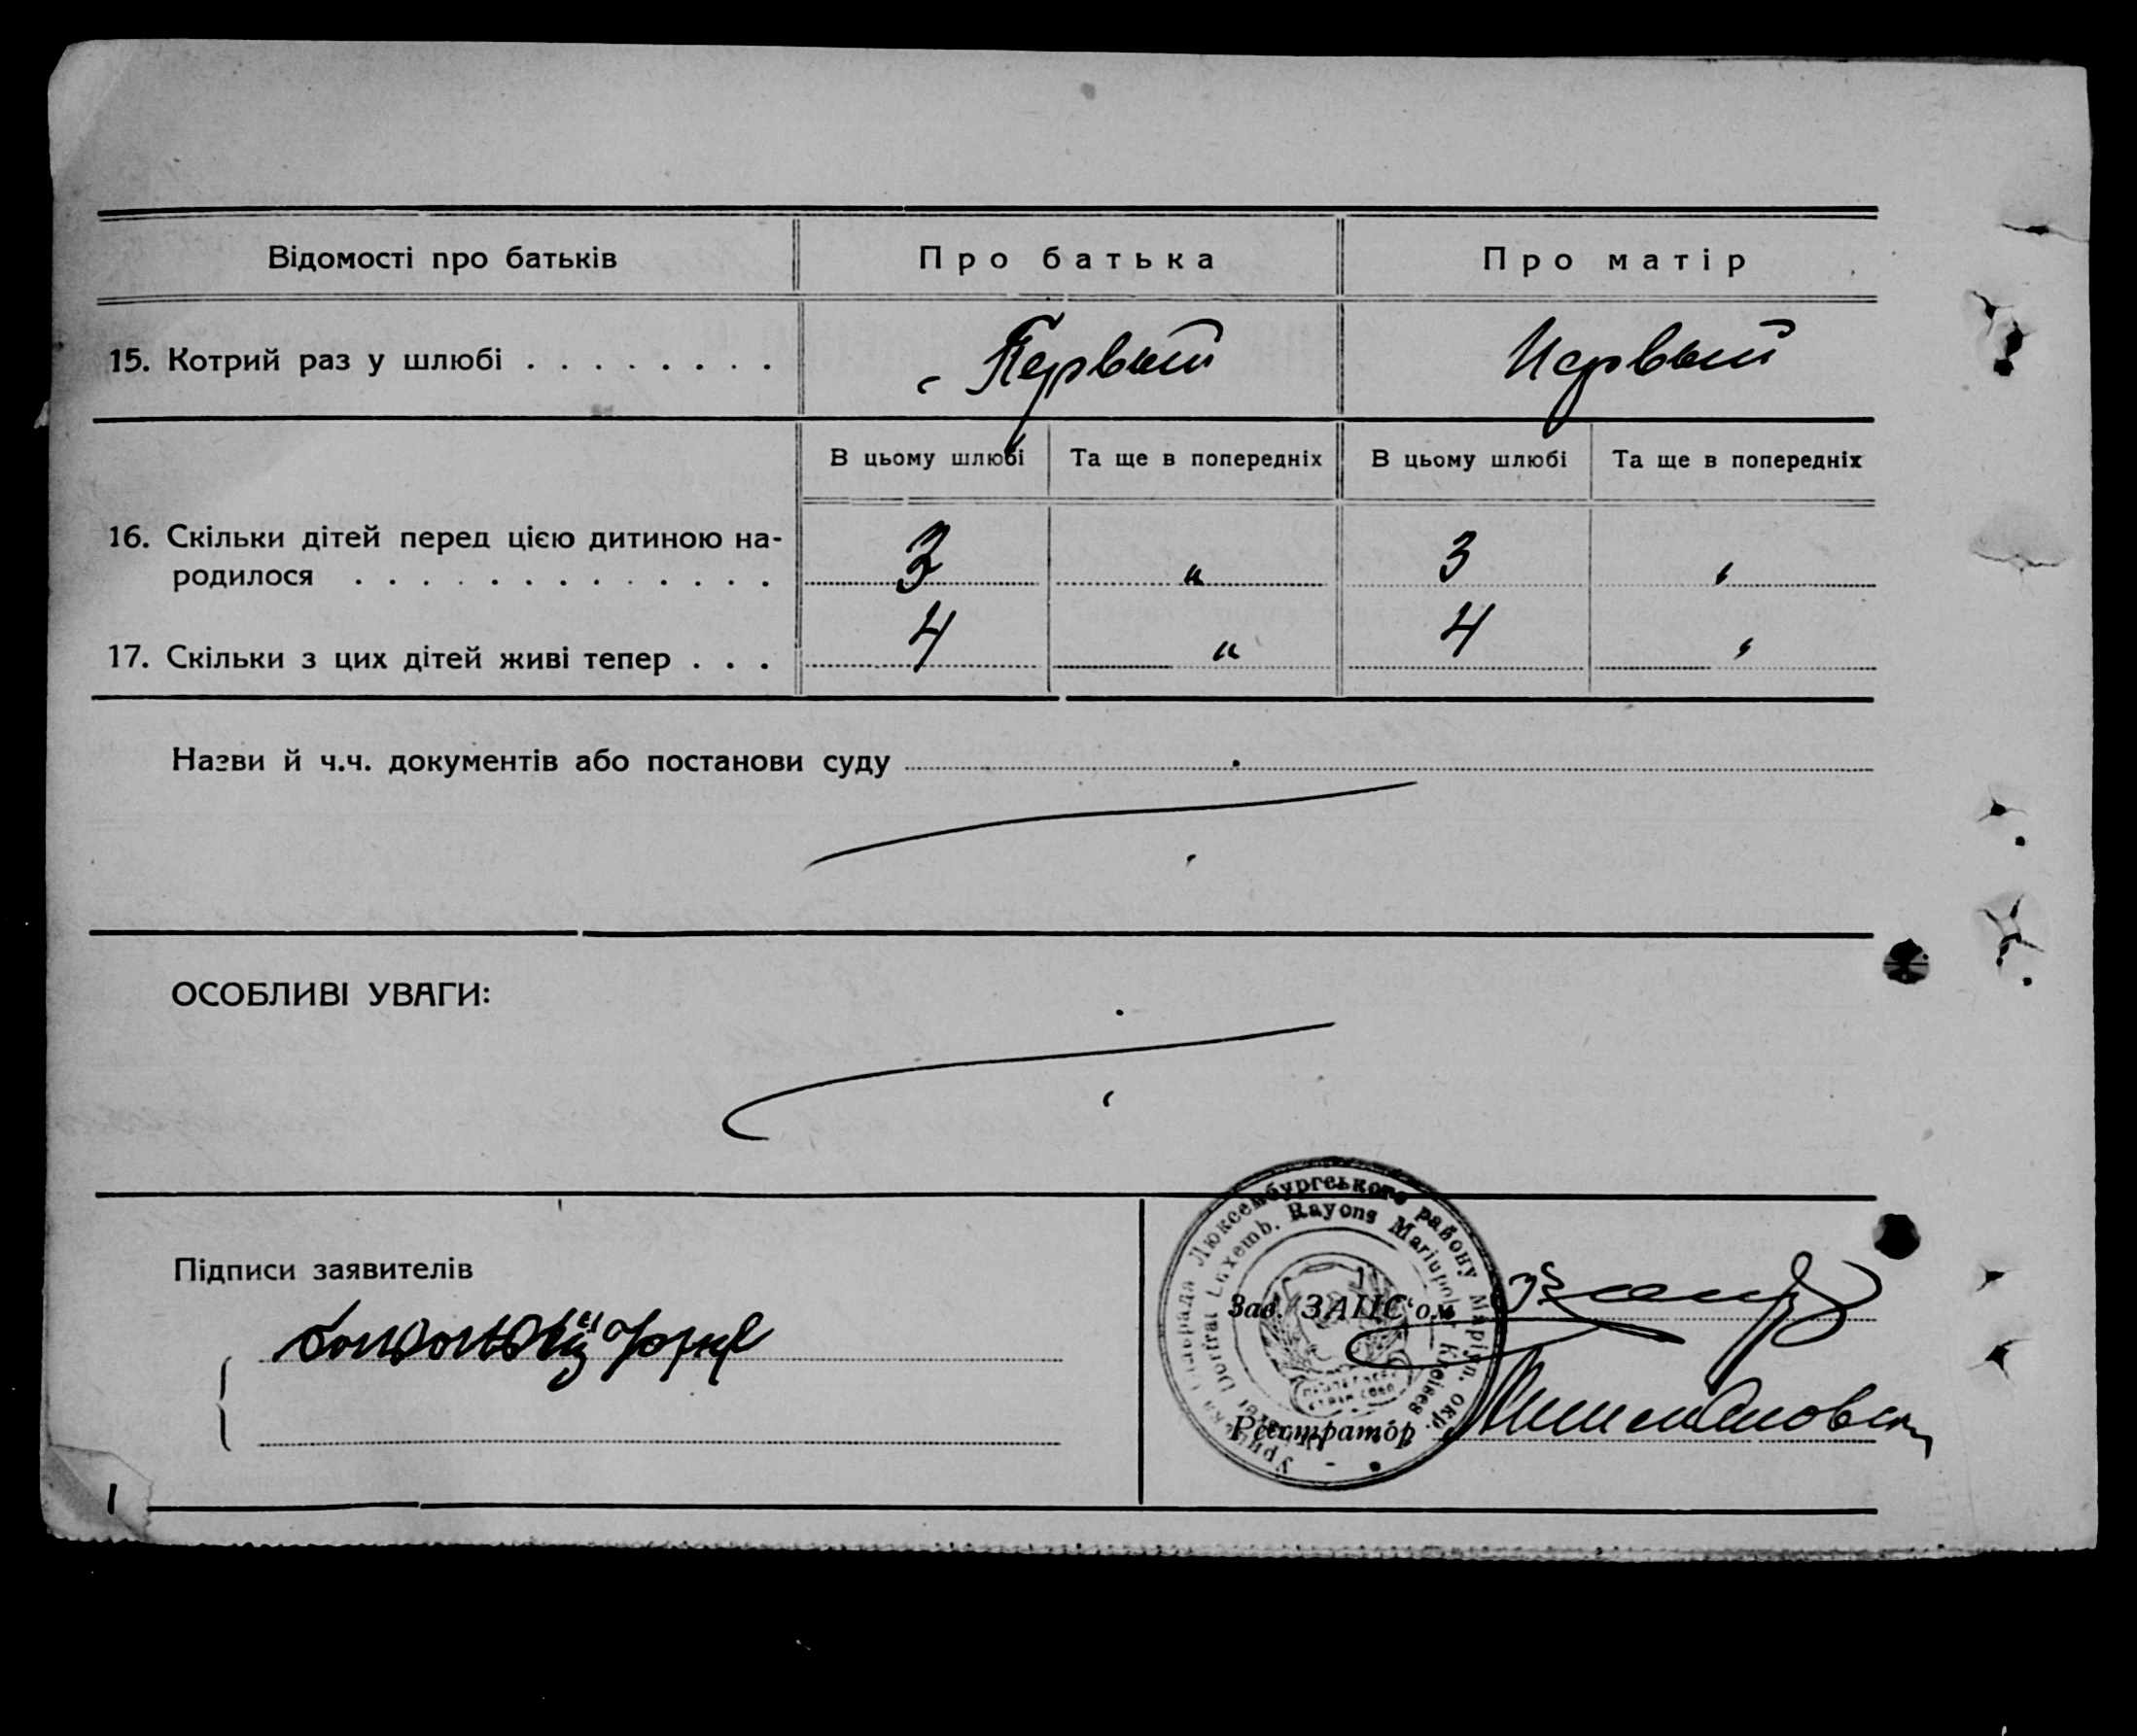 Відомості про батьків
Про батька
Про матір
15. Котрий раз у шлюбі . . . . . . . .
Первый
Первый
В цьому шлюбі
Та ще в попередніх
В цьому шлюбі
Та ще в попередніх
16. Скільки дітей перед цією дитиною на-
родилося . . . . . . . . . . . . .
3
"
3
"
17. Скільки з цих дітей живі тепер . . .
4
"
4
"
Назви й ч.ч. документів або постанови суду
ОСОБЛИВІ УВАГИ:
Підписи заявителів
Зав. ЗАПС'ом
Реєстратор
Люксембургського району Маріюп. окр.
Luxemb. Rayons Mariupoler Kreises